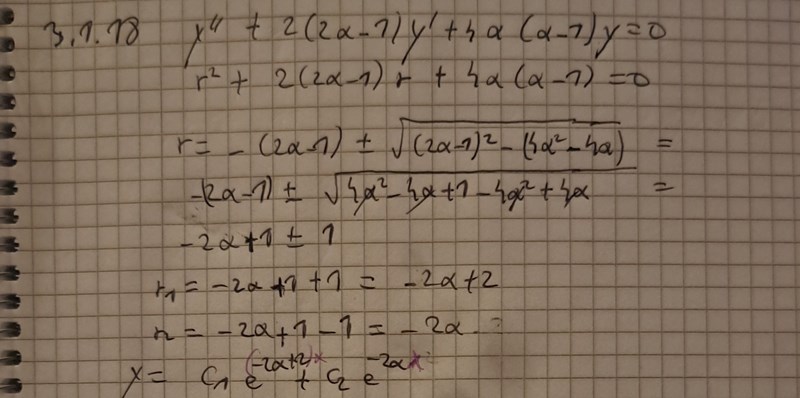 3.1.18 y'' + 2(2α-1)y' + 4α(α-1)y=0
r² + 2(2α-1)r + 4α(α-1)=0
r= -(2α-1) ± √((2α-1)² - (4α²-4α)) =
-(2α-1) ± √(4α²-4α+1-4α²+4α) =
-2α+1 ± 1
r₁ = -2α+1+1 = -2α+2
r₂ = -2α+1-1 = -2α
y= c₁ e^(-2α+2)x + c₂ e^-2αx